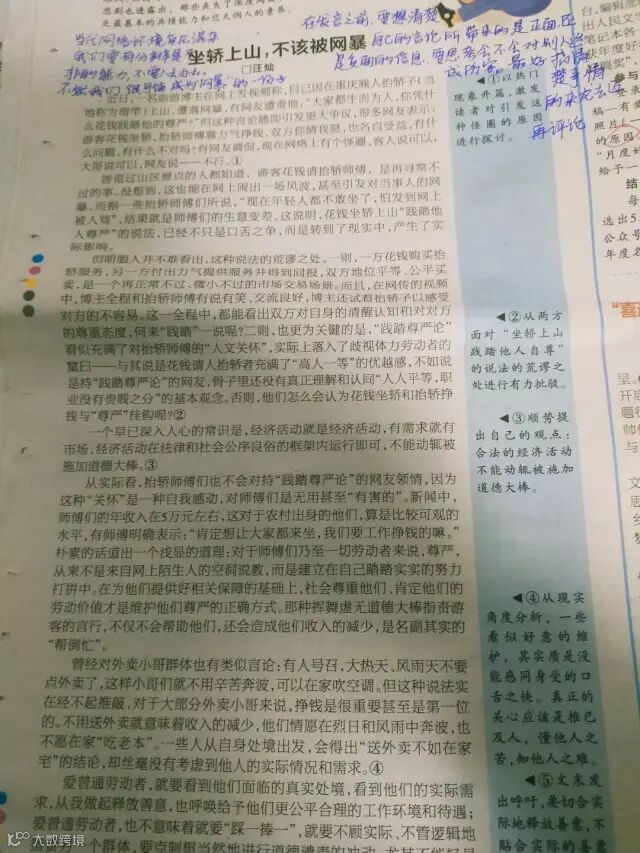 当代网络环境
我们要有分辨是
非的能力,不要人云亦云
不然我们很可能成为"网暴"的一份子
在发言之前,要想清楚
自己的言论所带来的是正面还
是负面的信息,要思考会不会对别人造
楚事情
的来龙去脉
再评论
坐轿上山,不该被网暴
□汪灿
近日,一名旅游博主在网上发视频称,自己因在重庆雇人抬轿子(当
地称为滑竿)上山,遭遇网暴,有网友谴责他:"大家都生而为人,你凭什
么花钱践踏他的尊严?"但这种言论随即引发更大争议,很多网友表示:
游客花钱坐轿,抬轿师傅靠力气挣钱,双方你情我愿,也各自受益,有什
么问题,有什么不对吗?有网友调侃,现在网络上有个怪圈,客人说可以,
大哥说可以,网友说——不行。①
游览过山区景点的人都知道,游客花钱请抬轿师傅,是再寻常不
过的事。没想到,这也能在网上闹出一场风波,甚至引发对当事人的网
暴。而据一些抬轿师傅们所说,"现在年轻人都不敢坐了,怕发到网上
被人骂",结果就是师傅们的生意变差。这说明,花钱坐轿上山"践踏他
人尊严"的说法,已经不只是口舌之争,而是转到了现实中,产生了实
际影响。
但明眼人并不难看出,这种说法的荒谬之处。一则,一方花钱购买抬
轿服务,另一方付出力气提供服务并得到回报,双方地位平等、公平买
卖,是一个再正常不过、微小不过的市场交易场景。而且,在网传的视频
中,博主全程和抬轿师傅有说有笑、交流良好,博主还试着抬轿子以感受
对方的不容易。这一全程中,都能看出双方对自身的清醒认知和对对方
的尊重态度,何来"践踏"一说呢?二则,也更为关键的是,"践踏尊严论"
看似充满了对抬轿师傅的"人文关怀",实际上落入了歧视体力劳动者的
窠臼——与其说是花钱请人抬轿者充满了"高人一等"的优越感,不如说
是持"践踏尊严论"的网友,骨子里还没有真正理解和认同"人人平等,职
业没有贵贱之分"的基本观念。否则,他们怎么会认为花钱坐轿和抬轿挣
钱与"尊严"挂钩呢?②
一个早已深入人心的常识是,经济活动就是经济活动,有需求就有
市场,经济活动在法律和社会公序良俗的框架内运行即可,不能动辄被
施加道德大棒。③
从实际看,抬轿师傅们也不会对持"践踏尊严论"的网友领情,因为
这种"关怀"是一种自我感动,对师傅们是无用甚至"有害的"。新闻中,
师傅们的年收入在5万元左右,这对于农村出身的他们,算是比较可观的
水平,有师傅明确表示:"肯定想让大家都来坐,我们要工作挣钱的嘛。"
朴素的话道出一个浅显的道理:对于师傅们乃至一切劳动者来说,尊严,
从来不是来自网上陌生人的空洞说教,而是建立在自己踏踏实实的努力
打拼中。在为他们提供好相关保障的基础上,社会尊重他们、肯定他们的
劳动价值才是维护他们尊严的正确方式。那种挥舞虚无道德大棒指责游
客的言行,不仅不会帮助他们,还会造成他们收入的减少,是名副其实的
"帮倒忙"。
曾经对外卖小哥群体也有类似言论:有人号召,大热天、风雨天不要
点外卖了,这样小哥们就不用辛苦奔波,可以在家吹空调。但这种说法实
在经不起推敲,对于大部分外卖小哥来说,挣钱是很重要甚至是第一位
的。不用送外卖就意味着收入的减少,他们情愿在烈日和风雨中奔波,也
不愿在家"吃老本"。一些人从自身处境出发,会得出"送外卖不如在家
宅"的结论,却丝毫没有考虑到他人的实际情况和需求。④
爱普通劳动者,就要看到他们面临的真实处境,看到他们的实际需
求,从我做起释放善意,也呼唤给予他们更公平合理的工作环境和待遇;
爱普通劳动者,也不意味着就要"踩一捧一",就要不顾实际、不管逻辑地
◀①以热门
现象开篇,激发
读者对引发这
种怪圈的原因
进行探讨。
◀②从两方
面对"坐轿上山
践踏他人自尊"
的说法的荒谬之
处进行有力批驳。
◀③顺势提
出自己的观点:
合法的经济活动
不能动辄被施加
道德大棒。
◀④从现实
角度分析,一些
看似好意的维
护,其实质是没
能感同身受的口
舌之快。真正的
关心应该是推己
及人,懂他人之
苦,知他人之难。
◀⑤文末发
出呼吁,要切合实
际地释放善意,不
贴合实际的善意
大数跨境